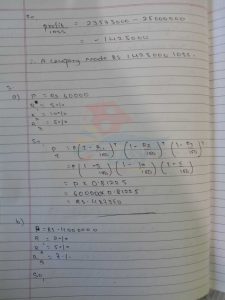 So,
profit
loss = 23575000 - 25000000
= - 1425000
∴ A company made Rs 1425000 loss.
a) P = Rs. 60000
R = 5%
R = 10%
R = 5%
So,
P = P (1 - R1/100) (1 - R2/100) (1 - R3/100)
T
= P (1 - 5/100) (1 - 10/100) (1 - 5/100)
= P × 0.81225
= 60000 × 0.81225
= Rs. 487350
b)
= Rs. 4000000
R = 2%
R = 5%
R = 3%
So,